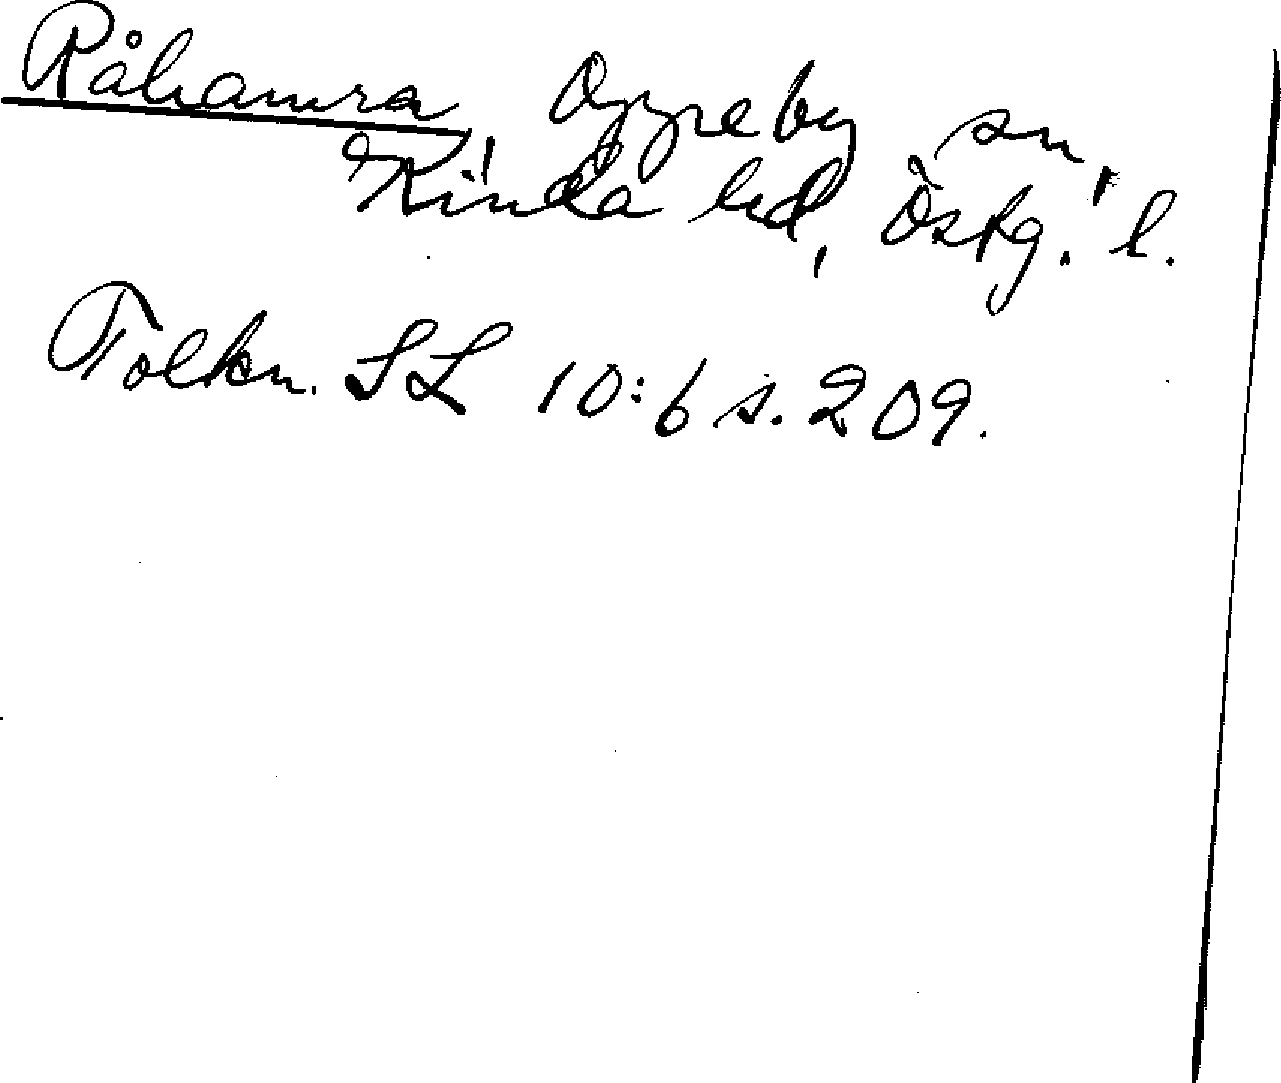 Råhamra, Oppeby sn,
Kinda hd, Östg. l.
Folkn. SL 10:6 s. 209.